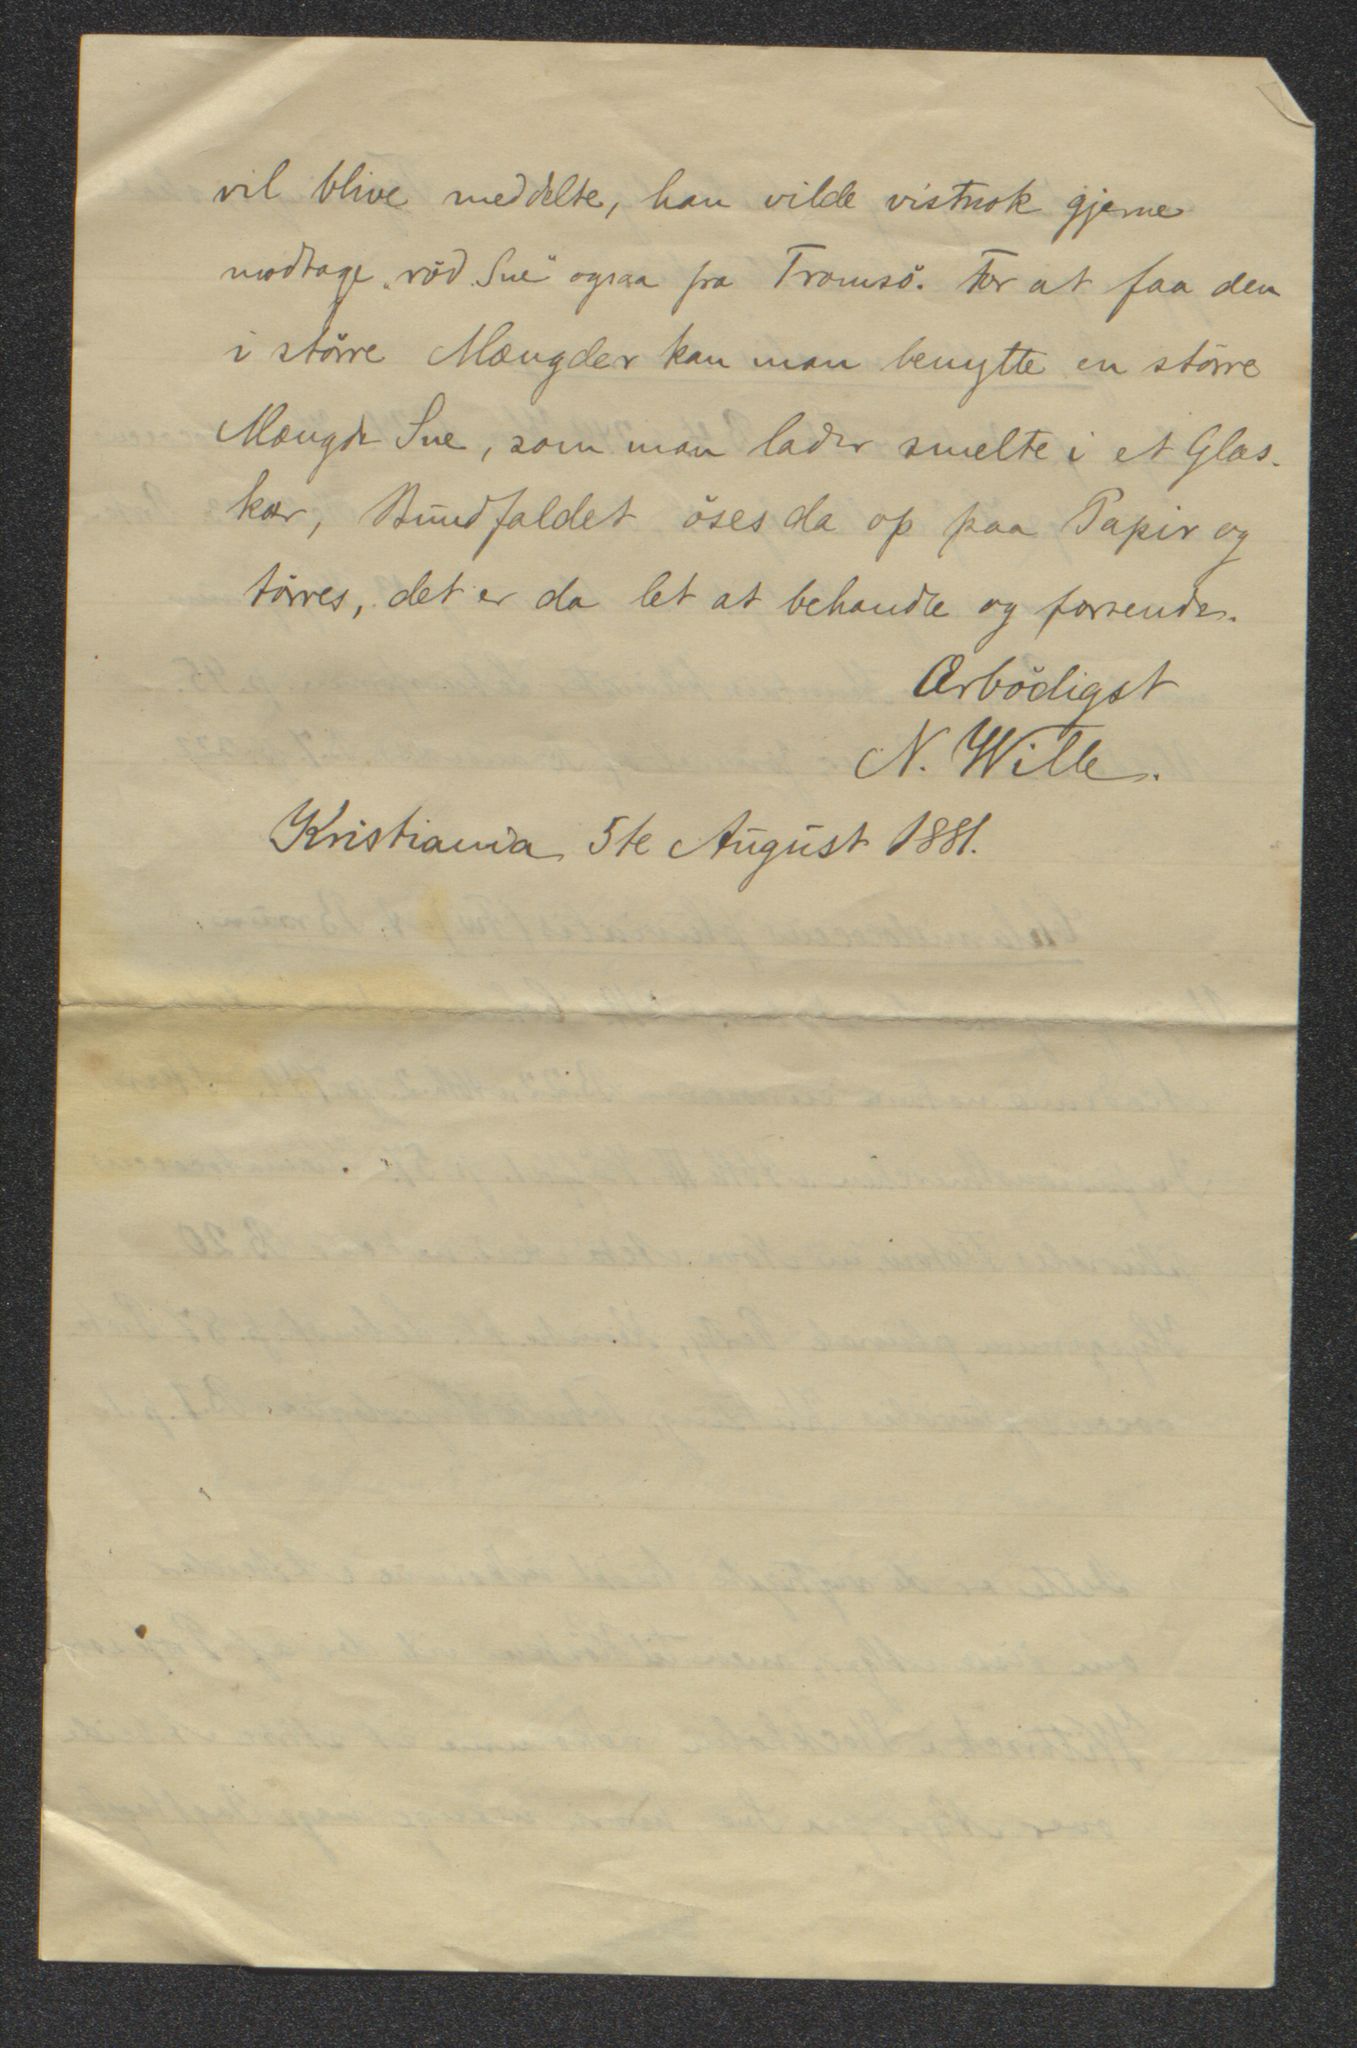 vil blive meddelte, han vilde vistnok gjerne
modtage „röd Sne" ogsaa fra Tromsö. For at faa den
i större Mængder kan man benytte en större
Mængde Sne, som man lader smelte i et Glas-
kar, Bundfaldet öses da op paa Papir og
törres, det er da let at behandle og forsende.
Ærbödigst
N. Wille.
Kristiania 5te August 1881.